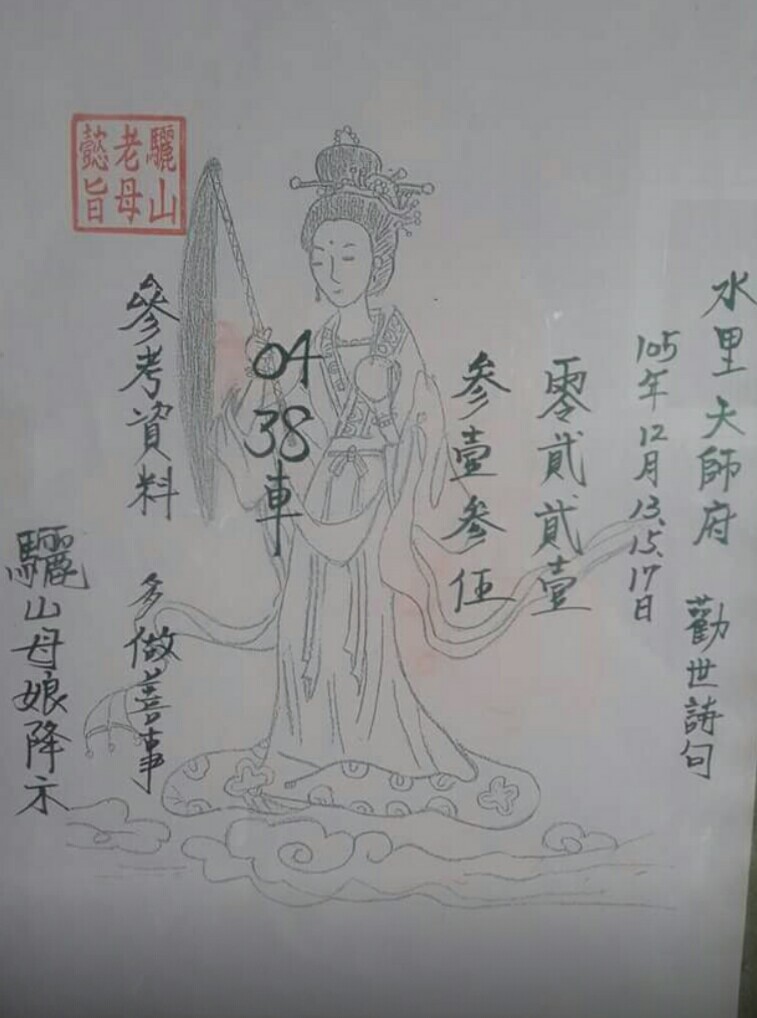 水里天師府 勸世詩句
105年12月13、15、17日
零貳貳壹
參壹參伍
04
38
車
參考資料 多做善事
驪山母娘降示
驪山
老母
懿旨